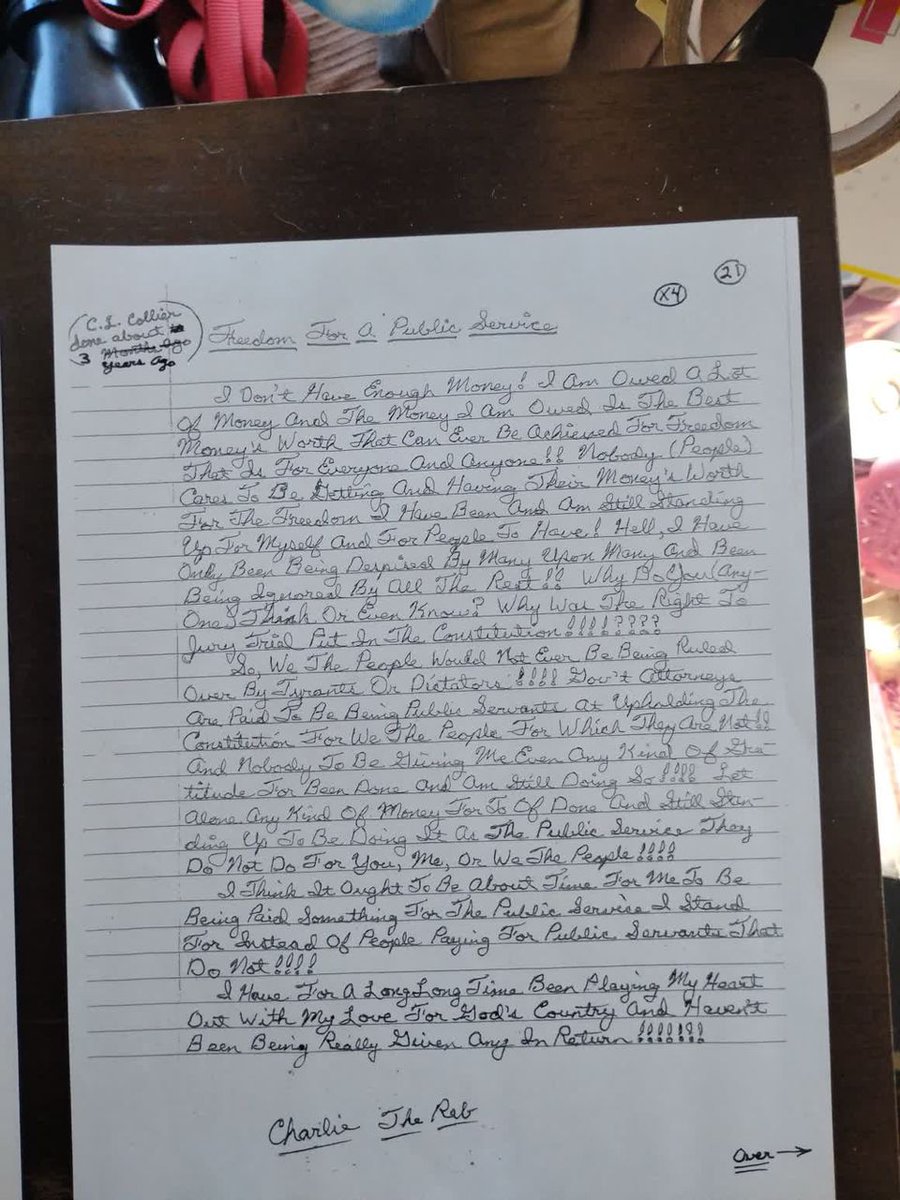 21
X4
C.L. Collier
done about
3 Months Ago
Years Ago
Freedom For A Public Service
I Don't Have Enough Money! I Am Owed A Lot
Of Money And The Money I Am Owed Is The Best
Money's Worth That Can Ever Be Achieved For Freedom
That Is For Everyone And Anyone!! Nobody (People)
Cares To Be Getting And Having Their Money's Worth
For The Freedom I Have Been And Am Still Standing
Up For Myself And For People To Have! Hell, I Have
Only Been Being Despised By Many Upon Many And Been
Being Ignored By All The Rest!! Why Do You (Any-
One) Think Or Even Know? Why Was The Right To
Jury Trial Put In The Constitution!!!!????
So, We The People Would Not Ever Be Being Ruled
Over By Tyrants Or Dictators!!!! Gov't Attorneys
Are Paid To Be Being Public Servants At Upholding The
Constitution For We The People For Which They Are Not!!
And Nobody To Be Giving Me Even Any Kind Of Gra-
titude For Been Done And Am Still Doing So!!!! Let
Alone Any Kind Of Money For To Of Done And Still Stan-
ding Up To Be Doing It As The Public Service They
Do Not Do For You, Me, Or We The People!!!!
I Think It Ought To Be About Time For Me To Be
Being Paid Something For The Public Service I Stand
For Instead Of People Paying For Public Servants That
Do Not!!!!
I Have For A Long Long Time Been Playing My Heart
Out With My Love For God's Country And Haven't
Been Being Really Given Any In Return!!!!!!!
Charlie The Reb
Over →